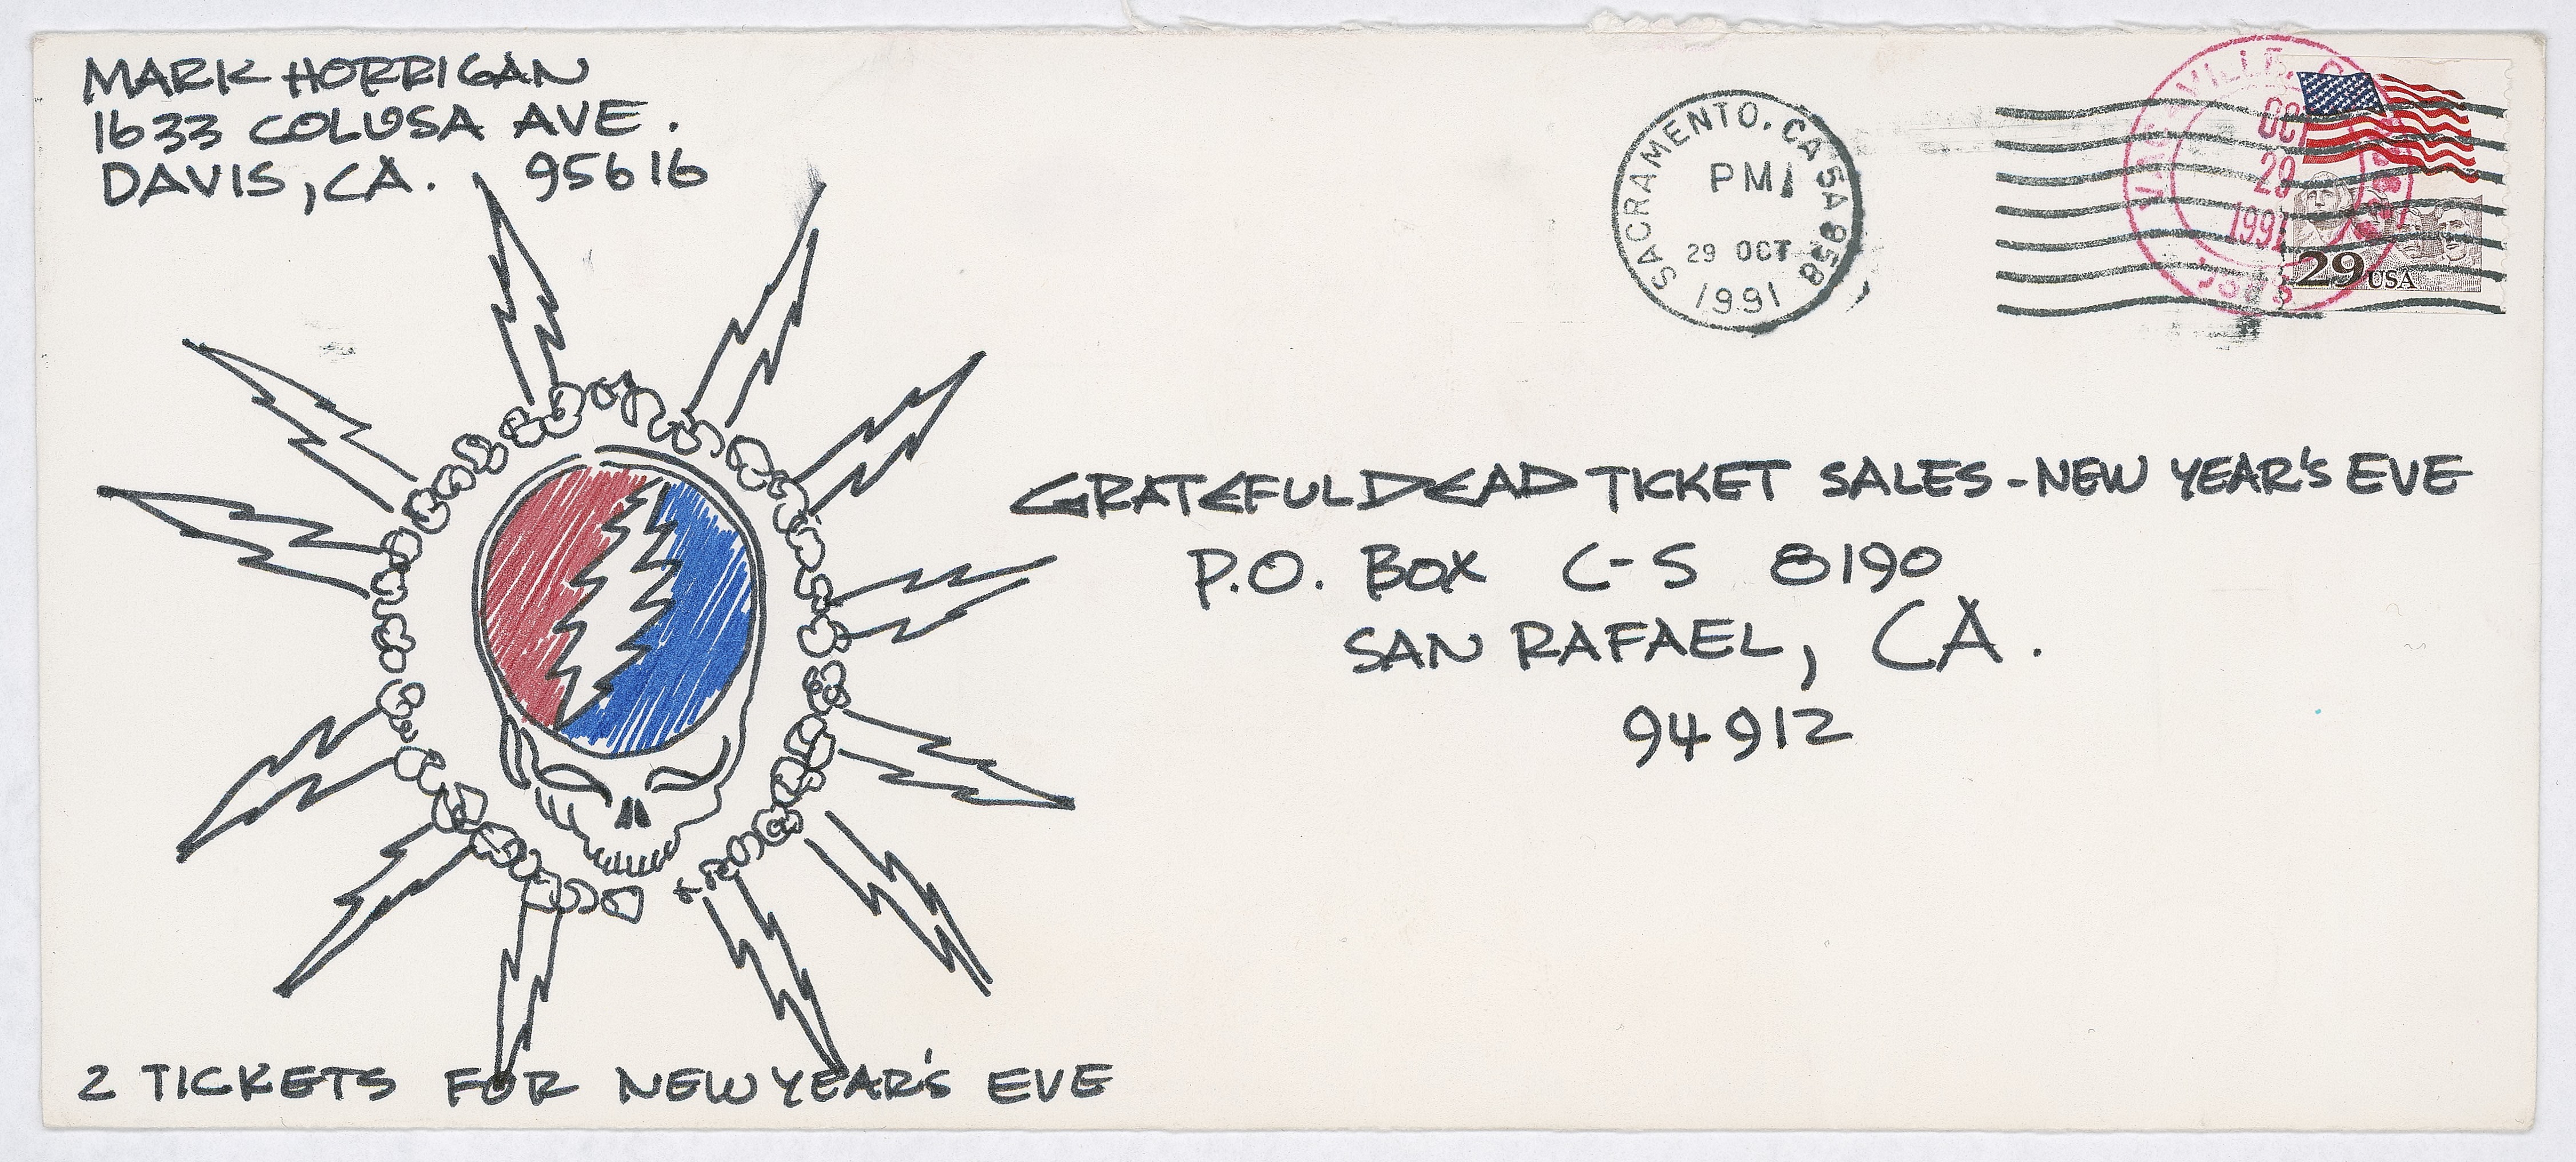 MARK HORRIGAN
1633 COLUSA AVE.
DAVIS, CA. 95616
SACRAMENTO, CA
PM
29 OCT
1991
OCT
29
1991
29 USA
GRATEFUL DEAD TICKET SALES - NEW YEAR'S EVE
P.O. BOX C-S 8190
SAN RAFAEL, CA.
94912
2 TICKETS FOR NEW YEAR'S EVE